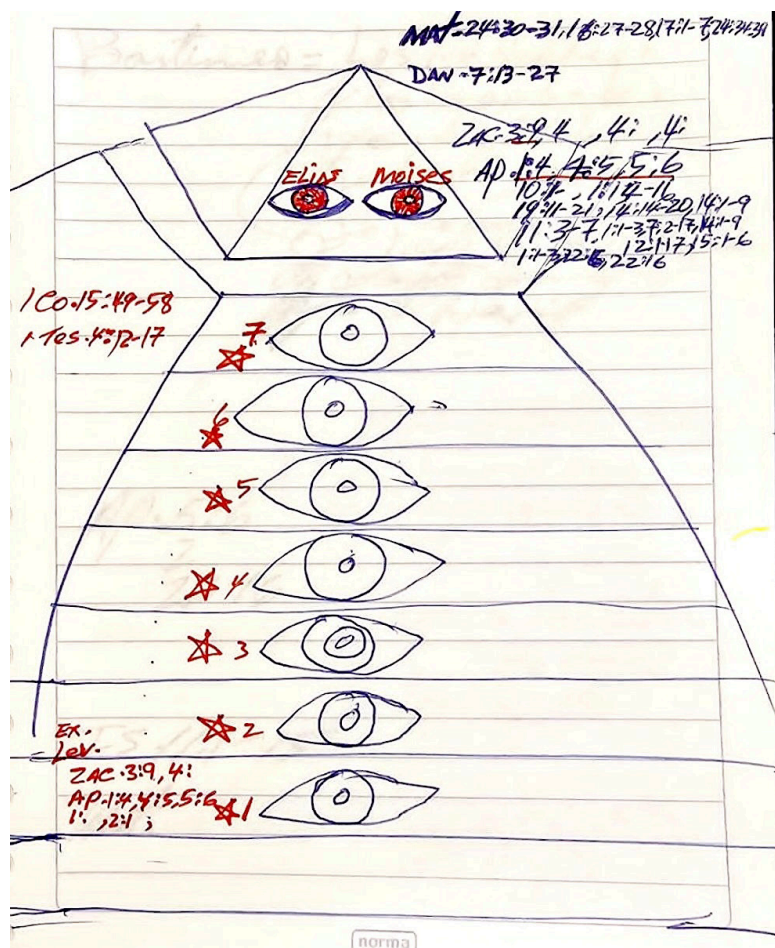 MAT-24:30-31,16:27-28,17:1-7,24:34-39
DAN-7:13-27
ZAC-3:9,4 ,4: ,4:
AP. 1:4, 4:5,5:6
19:11-21, 14:14-20,14:1-9
11:3-7, 1:1-3,7:2-17,14:1-9
12:1-17,15:1-6
22:16
ELIAS Moises
1 Co.15:49-58
1 Tes.4:12-17
7
6
5
4
3
2
EX.
Lev.
ZAC.3:9,4:
AP.1:4,4:5,5:6
1: ,2:1 ;
1
norma